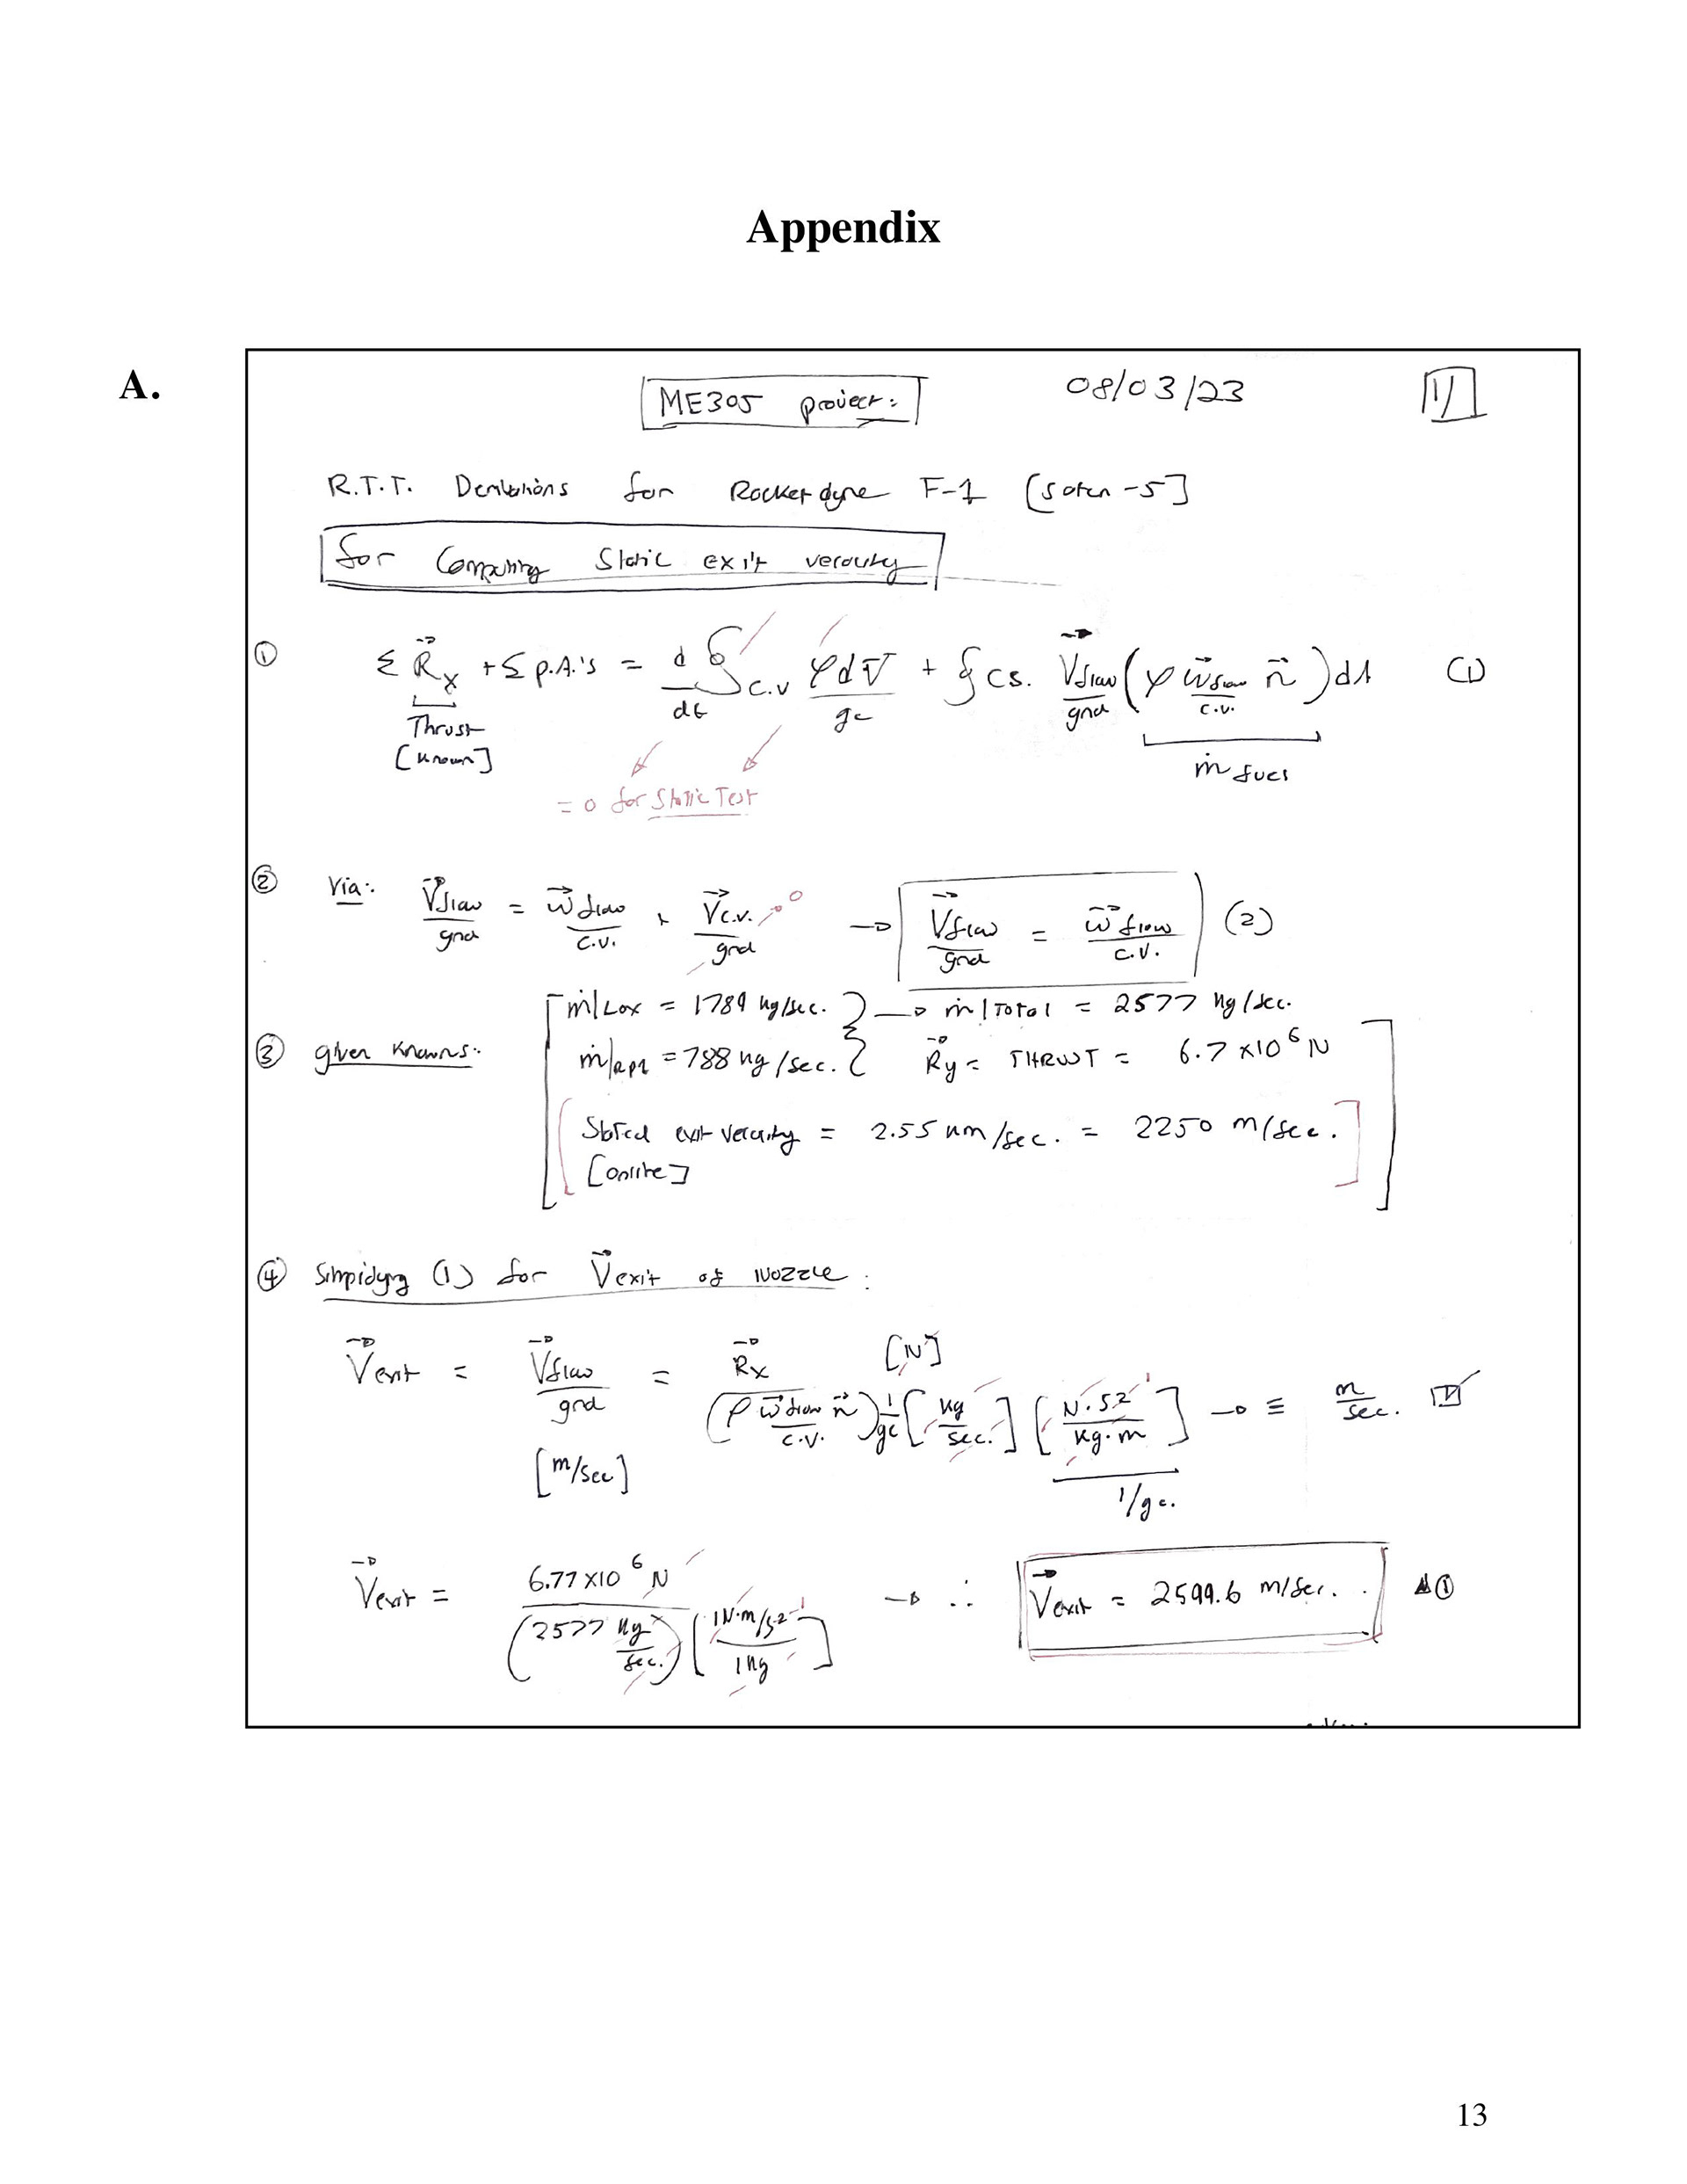 Appendix
A.
ME305 project:
08/03/23
1/
R.T.T. Derivations for Rocketdyne F-1 [Saturn-5]
for Computing Static exit velocity
① Σ R⃗x + Σ p.A.'s = d/dt ∮c.v ρdV/gc + ∮cs. V⃗flow/gnd (ρ w⃗flow/c.v. n⃗) dA (1)
Thrust
[known]
ṁ fuel
= 0 for Static Test
② Via: V⃗flow/gnd = w⃗flow/c.v. + V⃗c.v./gnd → 0 → V⃗flow/gnd = w⃗flow/c.v. (2)
ṁ|Lox = 1789 kg/sec. } → ṁ|Total = 2577 kg/sec.
③ given knowns: ṁ|RP1 = 788 kg/sec. } R⃗y = THRUST = 6.7 x10⁶ N
Stated exit velocity = 2.55 km/sec. = 2250 m/sec.
[online]
④ Simplifying (1) for V⃗exit of Nozzle:
V⃗exit = V⃗flow/gnd = R⃗x [N] / (ρ w⃗flow/c.v. n⃗) 1/gc [kg/sec.] [N·s²/kg·m] → ≡ m/sec. ☑
[m/sec]
1/gc.
V⃗exit = 6.77 x10⁶ N / (2577 kg/sec.) [1N·m/s²/1kg] → ∴ V⃗exit = 2599.6 m/sec. ①
13